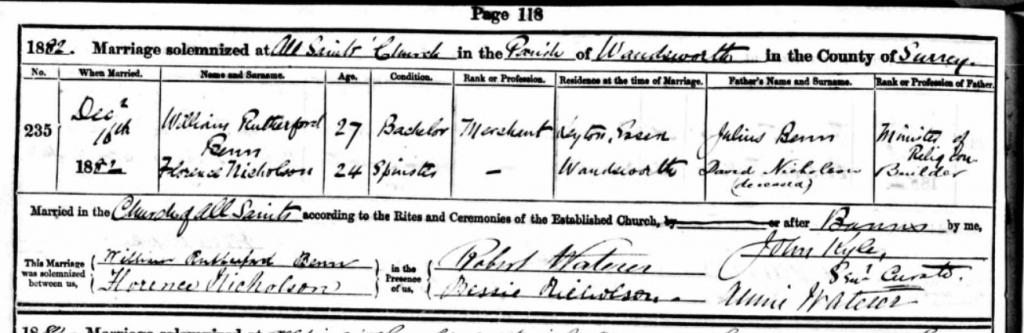 Page 118
1882. Marriage solemnized at All Saints' Church in the Parish of Wandsworth in the County of Surrey.
No. When Married. Name and Surname. Age. Condition. Rank or Profession. Residence at the time of Marriage. Father's Name and Surname. Rank or Profession of Father.
235 Decr 16th 1882 William Rutherford Benn 27 Bachelor Merchant Leyton, Essex Julius Benn Minister of Religion
Florence Nicholson 24 Spinster — Wandsworth David Nicholson (deceased) Builder
Married in the Church of All Saints according to the Rites and Ceremonies of the Established Church, by or after Banns by me,
John Kyle,
Senr Curate.
This Marriage was solemnized between us, William Rutherford Benn in the Presence of us, Robert Waterer
Florence Nicholson Bessie Nicholson Annie Waterer
18 Marriage solemnized at